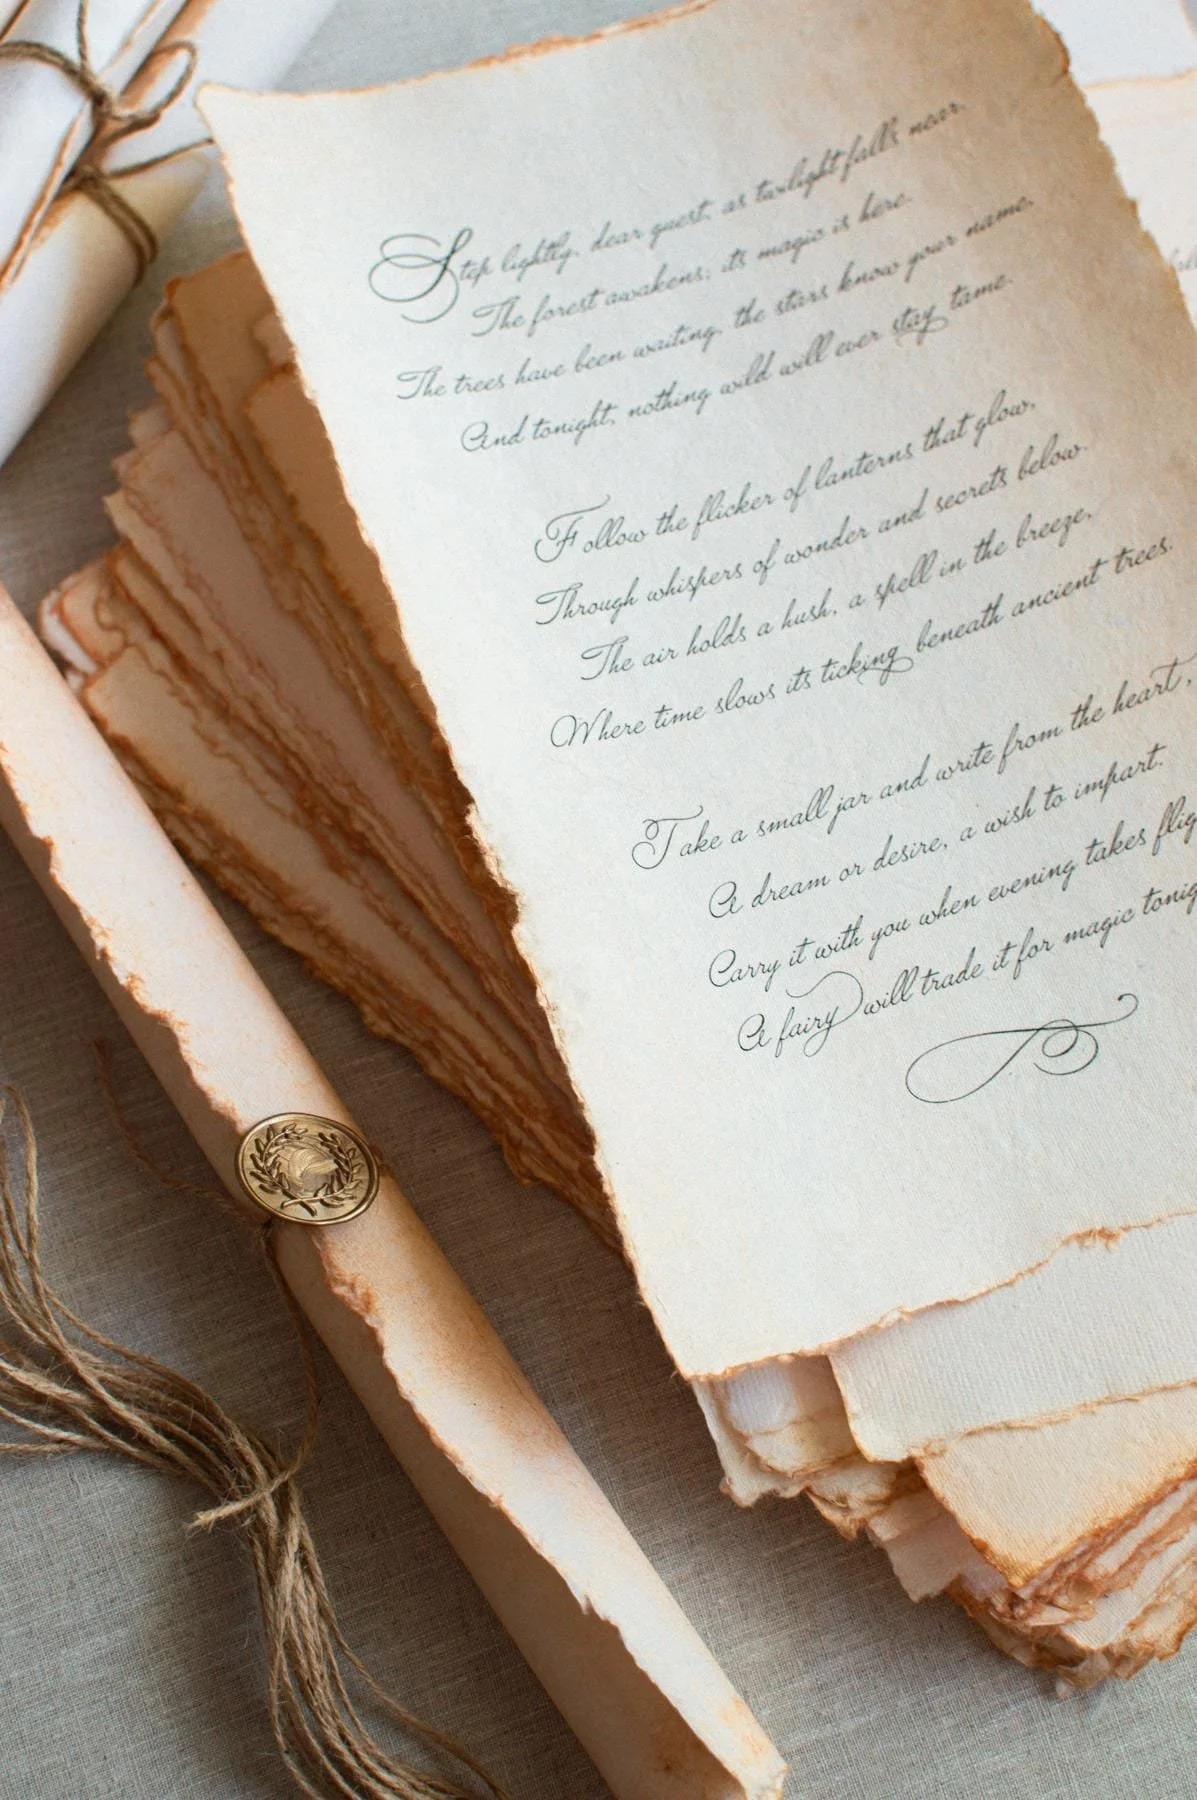 Step lightly, dear guest, as twilight falls near.
The forest awakens; its magic is here.
The trees have been waiting, the stars know your name,
And tonight, nothing wild will ever stay tame.
Follow the flicker of lanterns that glow,
Through whispers of wonder and secrets below.
The air holds a hush, a spell in the breeze,
Where time slows its ticking beneath ancient trees.
Take a small jar and write from the heart,
A dream or desire, a wish to impart.
Carry it with you when evening takes flig
A fairy will trade it for magic tonig